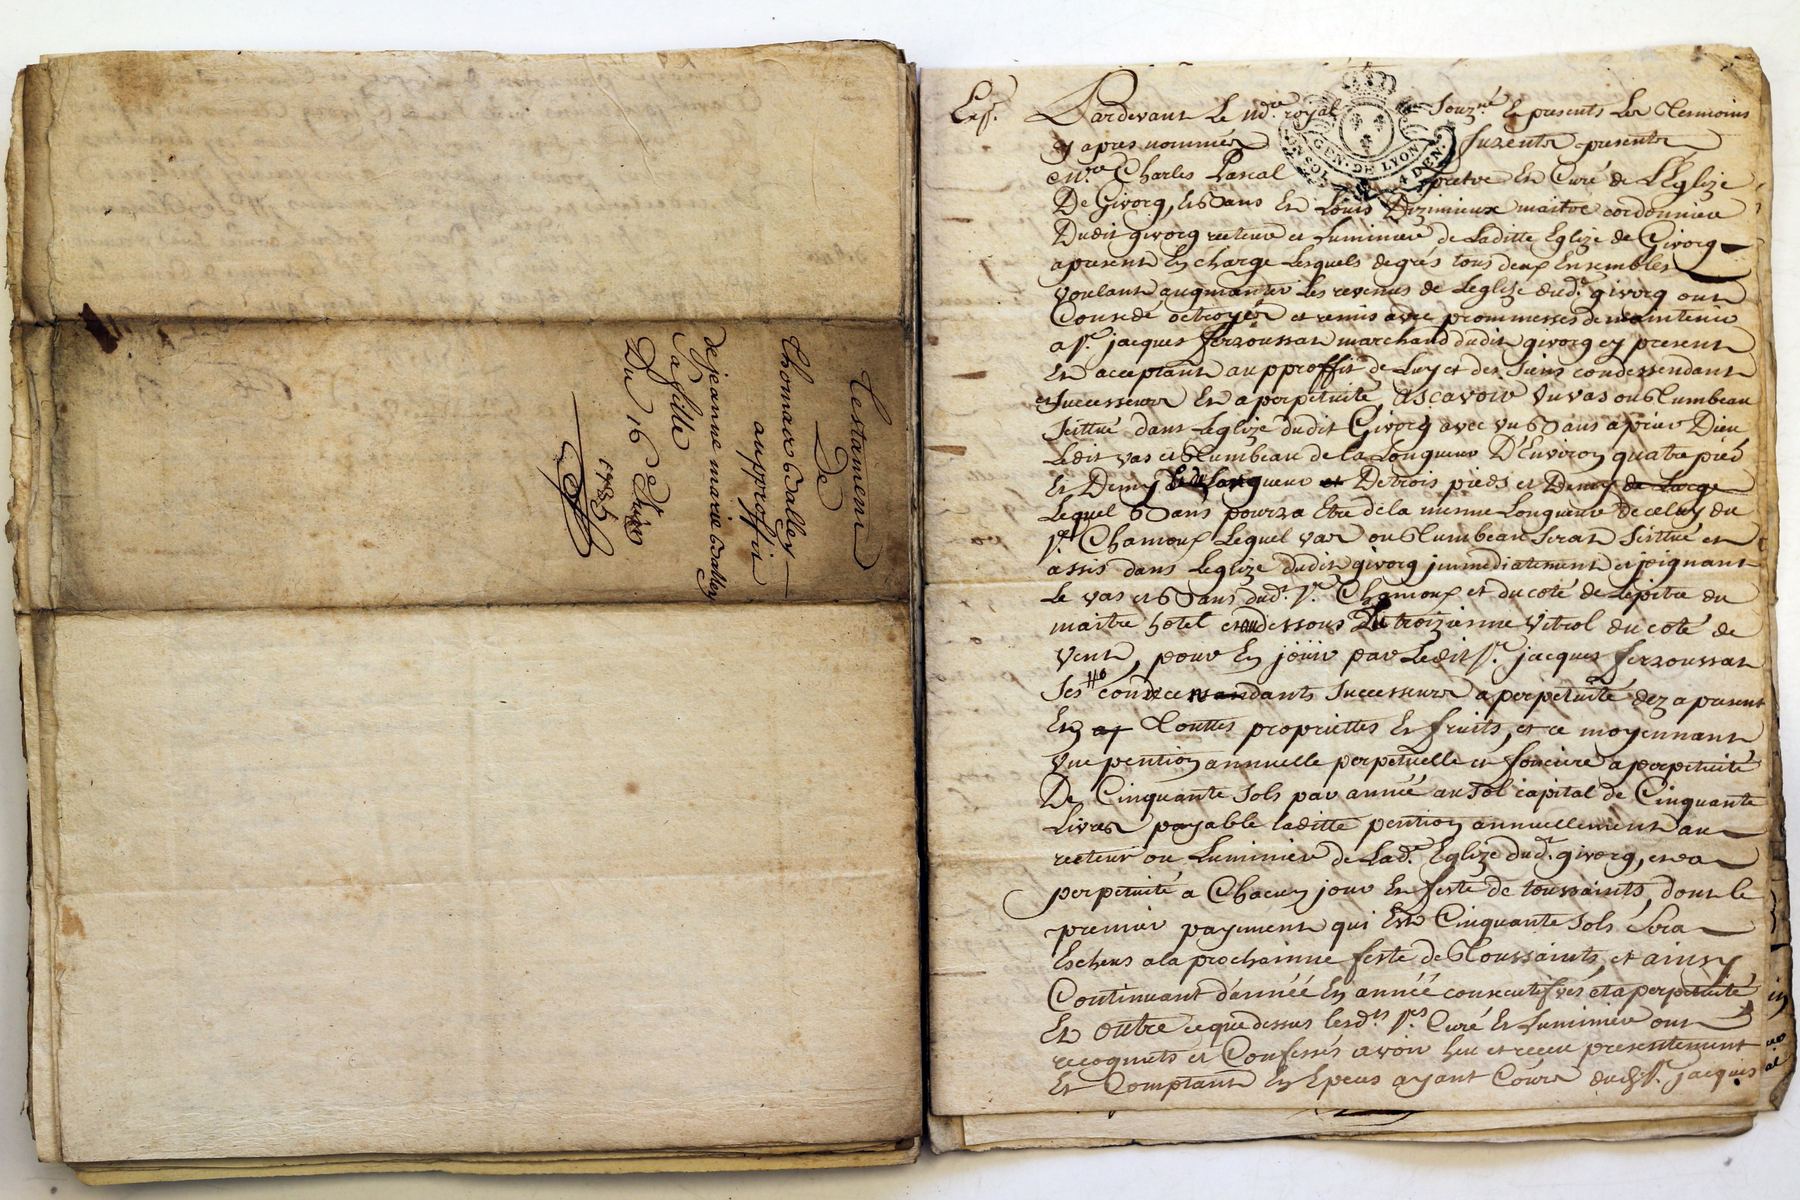 Testament
De
Thomas Valley
au proffit
de jeanne marie Valley
sa fille
Du 16e
1735
Pardevant Le No.re royal Souz.né Et presents Les Temoins
cy apres nommés furents presents
M.re Charles Pascal pretre Et Curé de L'Eglize
De Givorq, et Louis Dizimieux maitre cordonnier
Dudit givorq recteur et Luminier de Laditte Eglize de Givorq
apresent En charge Lesquels de gres tous deux Ensembles
voulant augmanter Les revenus de Leglize dud.t givorq ont
Concede octroyés et remis avec prommesses de maintenir
a S.r jacques ferroussat marchand dudit givorq cy present
Et acceptant au pproffit de Luy et des siens condessendant
et successeurs Et a perpetuité ascavoir Un vas ou Tumbeau
scittué dans Leglize dudit Givorq avec un Banc a prier Dieu
Ledit vas et Tumbeau de la Longueur D'Environ quatre pied
Et Demy Et De trois pieds et Demy de Large
Lequel Banc pourra Etre de la mesme Longueur de celuy du
S.r Chamoux Lequel vas ou Tumbeau serat scittué et
assis dans Leglize dudit givorq jmmediatement et joignant
Le vas et Banc dud.t S.r Chamoux et du coté de Lepitre du
maitre hotel et au dessous Du troizieme vitrol du coté de
vent, pour En jouir par Ledit S.r jacques ferroussat
Ses condecendants successeurs a perpetuité dez a present
En Touttes propriettes Et fruits, et ce moyennant
Une pention annuelle perpetuelle et fonciere a perpetuité
De Cinquante sols par année au sol capital de Cinquante
Livres payable laditte pention annuellement au
recteur ou Luminier de Lad.e Eglize dud.t givorq, et a
perpetuité a Chacun jour Et feste de toussaints, dont le
premier payement qui Est Cinquante sols sera
Escheus a la prochainne feste de Toussaints, et ainsy
Continuant d'année En année consecutifvés et a perpetuité
Et outre ce que dessus lesd.ts S.rs Curé Et Luminier ont
recognuts et Confessés avoir heu et receu presentement
Et Comptant En Epeces ayant Cours dud. S.r jacques
GEN. DE LYON
4 DEN.